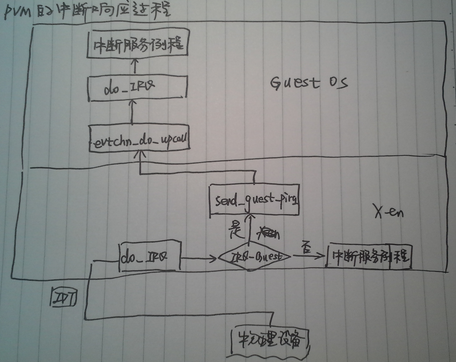 PVM的中断响应过程
中断服务例程
do_IRQ
Guest OS
evtchn_do_upcall
send_guest_pirq
Xen
是
do_IRQ
IRQ_Guest
否
中断服务例程
IDT
物理设备